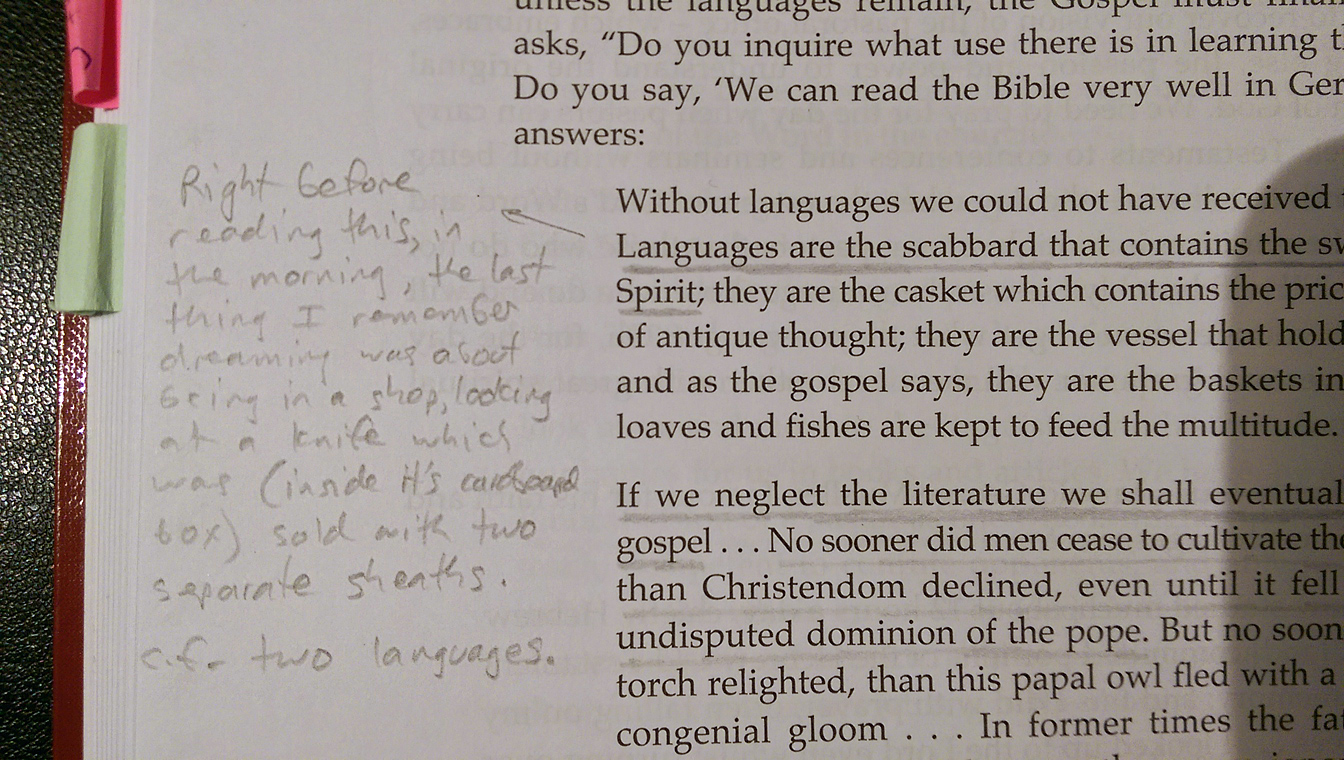 unless the languages remain, the Gospel must
asks, “Do you inquire what use there is in learning
Do you say, ‘We can read the Bible very well in
answers:
Right before
reading this, in
the morning, the last
thing I remember
dreaming was about
being in a shop, looking
at a knife which
was (inside it's cardboard
box) sold with two
separate sheaths.
c.f. two languages.
Without languages we could not have received
Languages are the scabbard that contains the
Spirit; they are the casket which contains the
of antique thought; they are the vessel that
and as the gospel says, they are the baskets in
loaves and fishes are kept to feed the multitude.
If we neglect the literature we shall
gospel . . . No sooner did men cease to cultivate
than Christendom declined, even until it fell
undisputed dominion of the pope. But no
torch relighted, than this papal owl fled with a
congenial gloom . . . In former times the